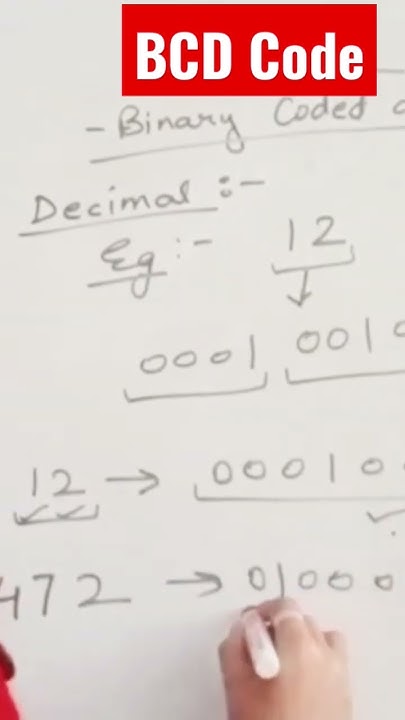 BCD Code
- Binary Coded
Decimal :-
Eg :- 12
0001 001
12 → 00010
472 → 01000